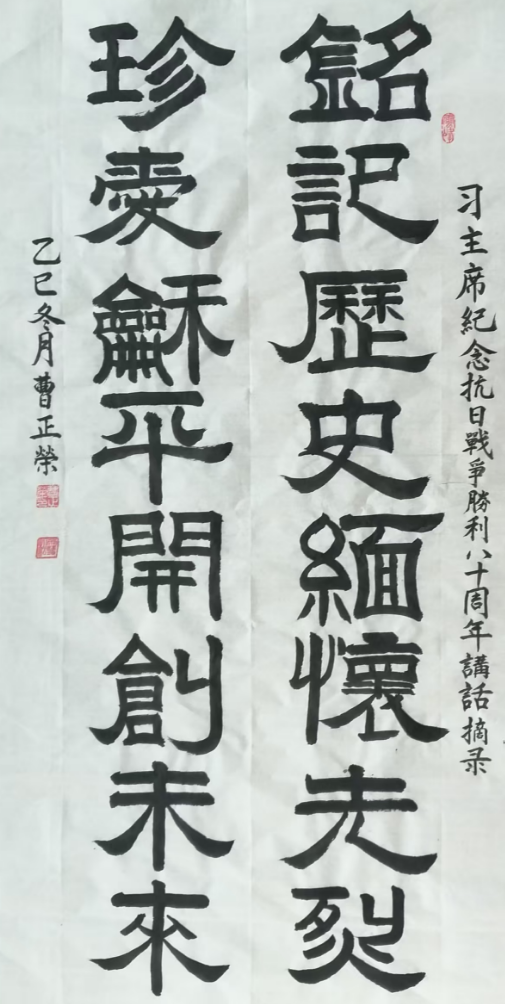 习主席紀念抗日戰爭勝利八十周年講話摘录
銘記歷史緬懷先烈
珍愛龢平開創未來
乙巳冬月曹正榮